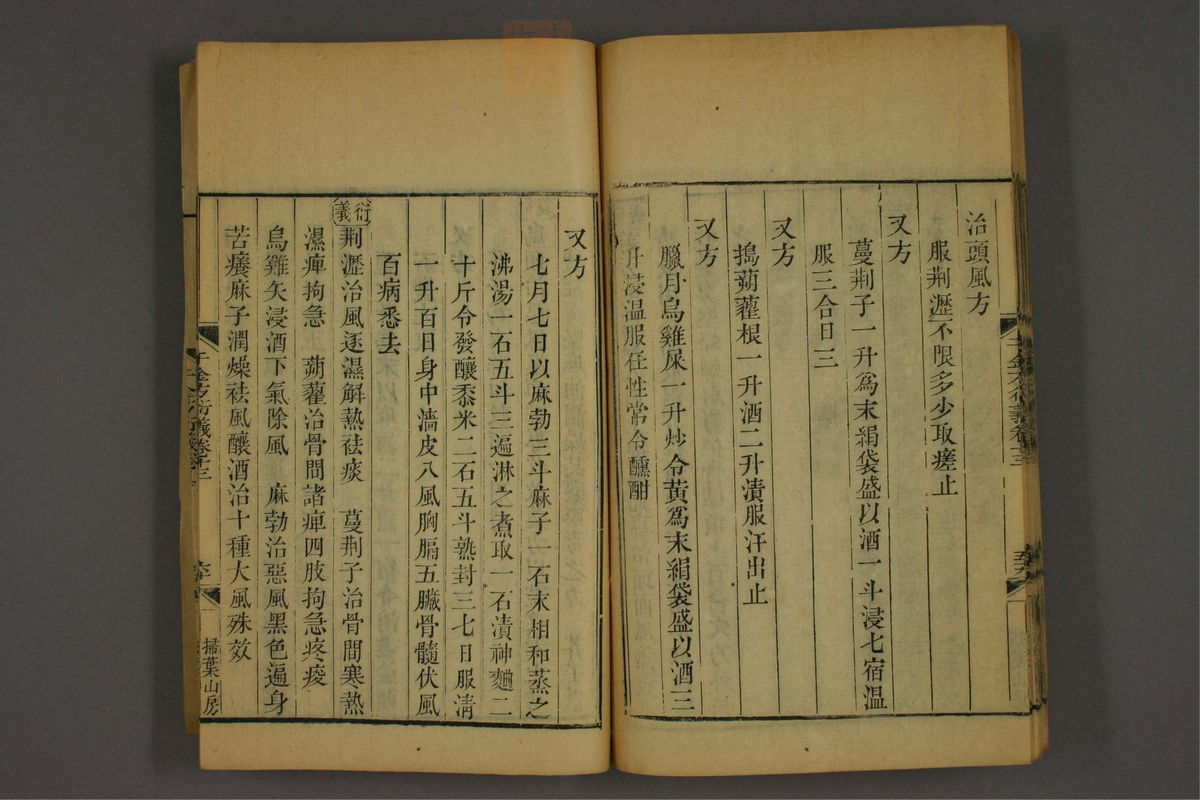 治頭風方
服荆瀝不限多少取瘥止
又方
蔓荆子一升爲末絹袋盛以酒一斗浸七宿温
服三合日三
又方
搗蒴藋根一升酒二升漬服汗出止
又方
臘月烏雞屎一升炒令黃爲末絹袋盛以酒三
升浸温服任性常令醺酣
又方
七月七日以麻勃三斗麻子一石末相和蒸之
沸湯一石五斗三遍淋之煮取一石漬神麯二
十斤令發釀黍米二石五斗熟封三七日服淸
一升百日身中濇皮八風胸膈五臟骨髓伏風
百病悉去
衍義
荆瀝治風逐濕解熱祛痰 蔓荆子治骨間寒熱
濕痺拘急 蒴藋治骨間諸痺四肢拘急疼痠
烏雞矢浸酒下氣除風 麻勃治惡風黑色遍身
苦癢麻子潤燥祛風釀酒治十種大風殊效
千金方衍義卷十三
掃葉山房